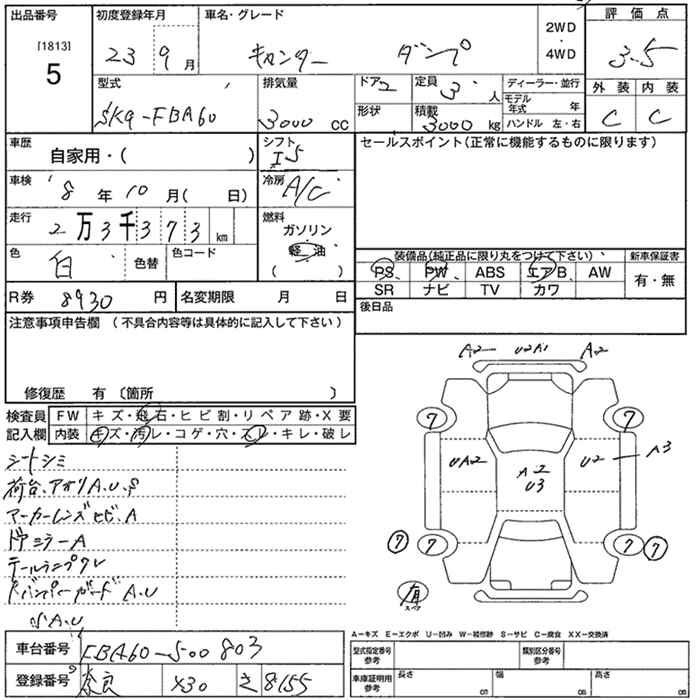 出品番号 初度登録年月 車名・グレード 2WD・4WD 評価点
[1813] 5 23 9月 キャンター ダンプ 3.5
型式 SKG-FBA60 排気量 3000 cc ドア 2 定員 3人 ディーラー・並行 外装 内装
形状 積載 3000kg モデル年式 年 C C
ハンドル 左・右
車歴 自家用・( ) シフト I5 セールスポイント(正常に機能するものに限ります)
車検 8年10月( 日) 冷房 A/C
走行 2万3千373km 燃料 ガソリン 軽油 ( )
色 白 色替 色コード
装備品(純正品に限り丸をつけて下さい) 新車保証書
PS PW ABS エアB AW 有・無
SR ナビ TV カワ
R券 8930円 名変期限 月 日 後日品
注意事項申告欄 (不具合内容等は具体的に記入して下さい)
修復歴 有 〔箇所 〕
検査員記入欄 FW キズ・飛石・ヒビ割・リペア跡・X要
内装 キズ・汚レ・コゲ・穴・スレ・キレ・破レ
シートシミ
荷台、アオリA.U.S
マーカーレンズヒビ、A
ドアミラーA
テールランプワレ
バンパーガード A.U
A.U
A2 U2A1 A2
7 7
UA2 A2 U3 U2 A3
7 7 7 7
有 スペア
A-キズ E-エクボ U-凹み W-補修跡 S-サビ C-腐食 XX-交換済
車台番号 FBA60-500803
登録番号 奈良 430 さ 8155
型式指定番号 参考 類別区分番号 参考
車庫証明用 参考 長さ cm 幅 cm 高さ cm